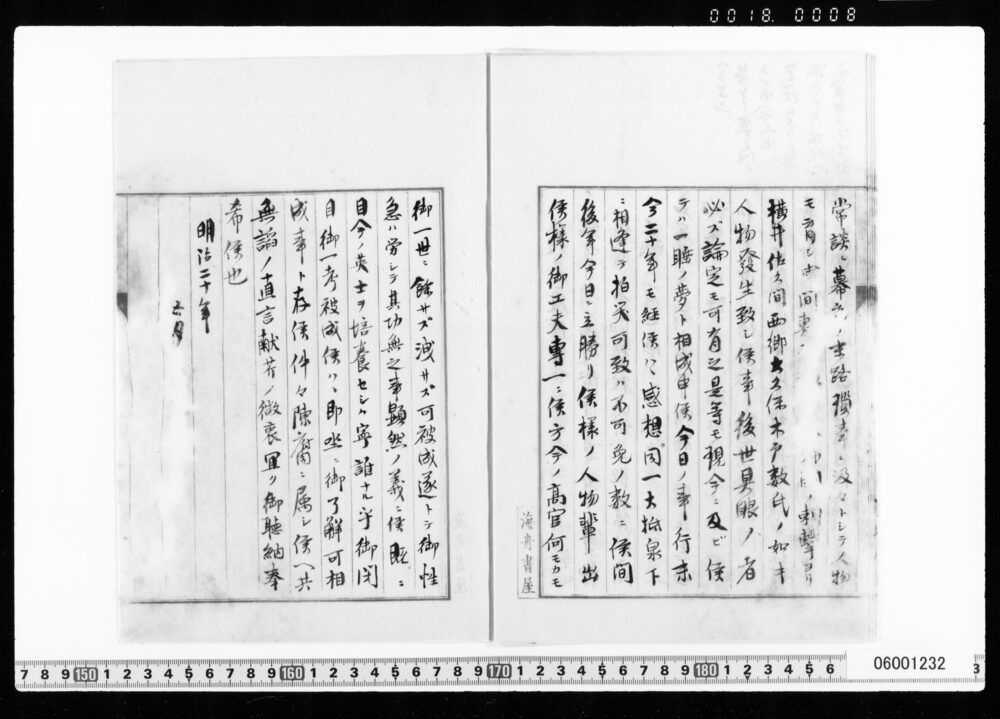 0018. 0008
常談ニ幕
モ
横井佐久間西郷大久保木戸数氏ノ如キ
人物發生致シ侯事後世具眼ノ者
必ズ論定モ可有之是等モ現今ニ及ビ侯
テハ一睡ノ夢ト相成申侯今日ノ事行末
今二十年モ経侯ハヾ感想同一大抵泉下
ニ相逢テ拍笑可致ハ不可免ノ数ニ侯間
後年今日ニ立勝リ侯様ノ人物輩出
侯様ノ御工夫專一ニ侯方今ノ高官何モカモ
海舟書屋
御一世ニ餘サズ洩サズ可被成遂トテ御性
急ハ労シテ其功無之事顕然ノ義ニ侯既ニ
目今ノ英士ヲ培養セシハ寧誰ナル乎御閑
日御一考被成侯ハヾ即
成事ト存侯件々陳腐ニ属シ侯ヘ共
無諂ノ直言献芹ノ微衷冝ク御聴納奉
希侯也
明治二十年
7 8 9 150 1 2 3 4 5 6 7 8 9 160 1 2 3 4 5 6 7 8 9 170 1 2 3 4 5 6 7 8 9 180 1 2 3 4 5 6
06001232
3